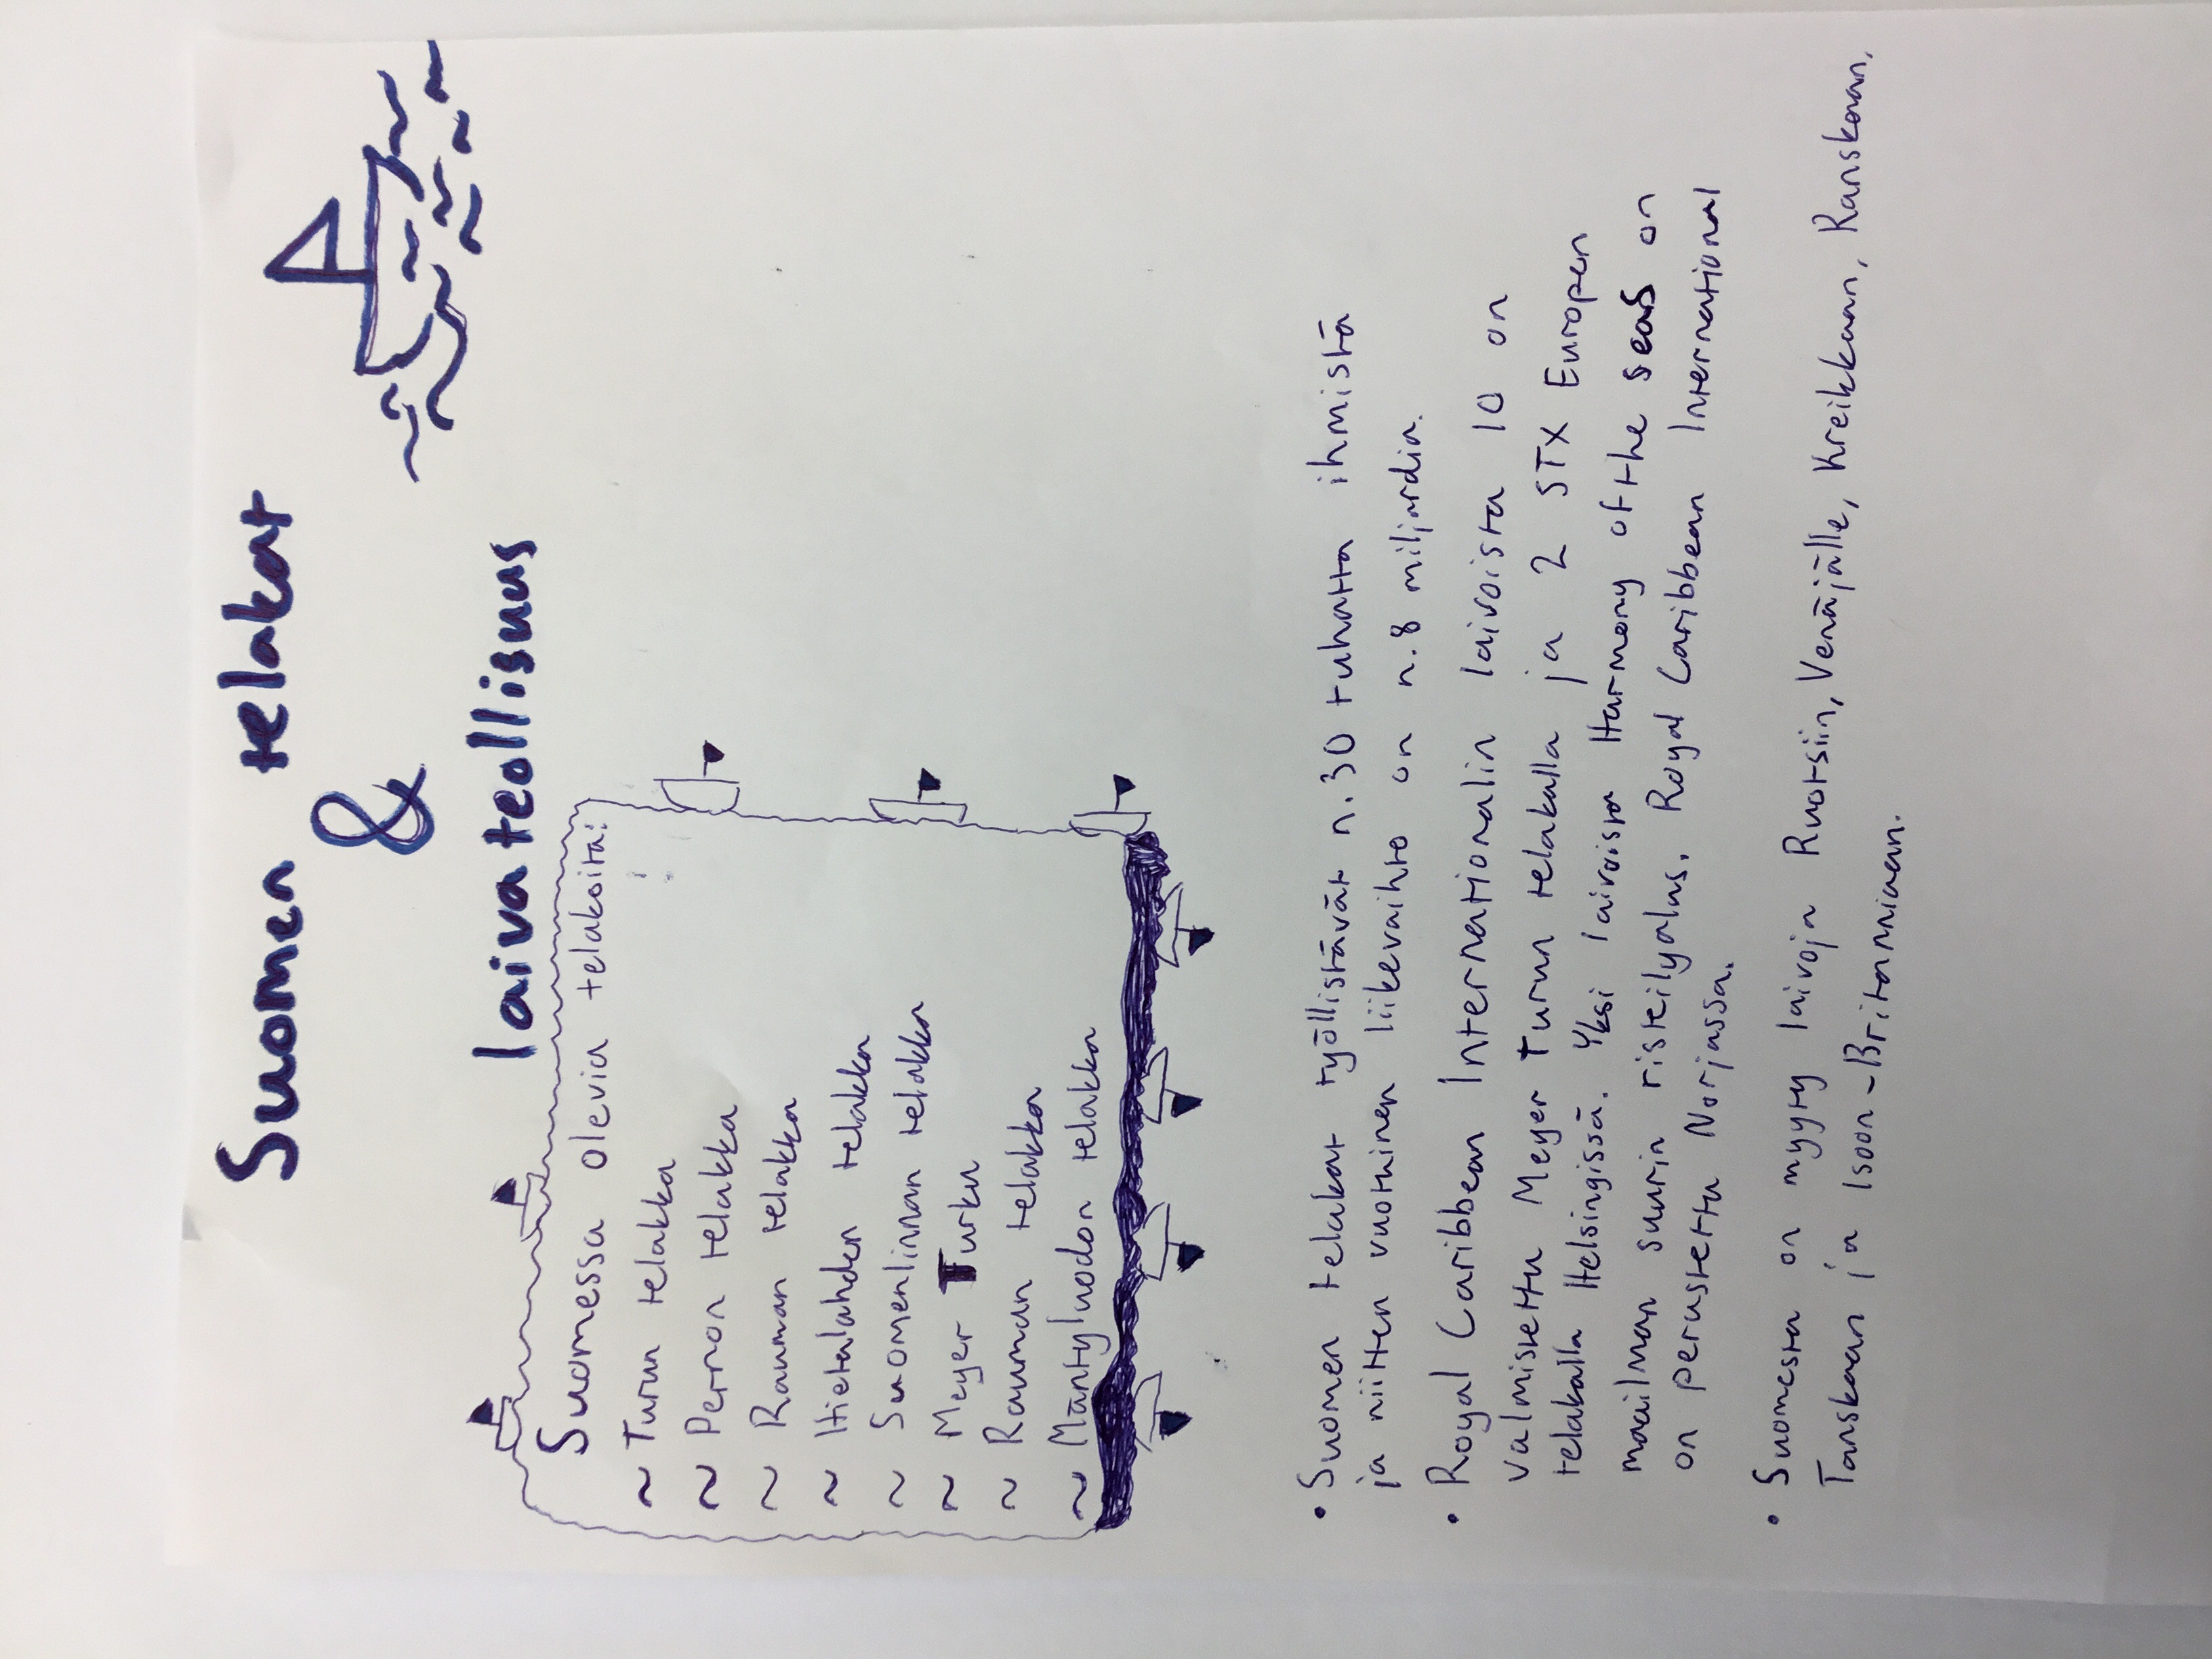 Suomen telakat
&
laivateollisuus
Suomessa olevia telakoita:
~ Turun telakka
~ Pernon telakka
~ Rauman telakka
~ Hietalahden telakka
~ Suomenlinnan telakka
~ Meyer Turku
~ Rauman telakka
~ Mäntyluodon telakka
• Suomen telakat työllistävät n.30 tuhatta ihmistä
ja niitten vuotuinen liikevaihto on n.8 miljardia.
• Royal Caribbean Internationalin laivoista 10 on
valmistettu Meyer Turun telakalla ja 2 STX Europen
telakalla Helsingissä. Yksi laivoista Harmony of the seas on
maailman suurin risteilyalus. Royal Caribbean International
on perustettu Norjassa.
• Suomesta on myyty laivoja Ruotsiin, Venäjälle, Kreikkaan, Ranskaan,
Tanskaan ja Isoon-Britanniaan.